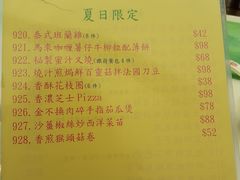 夏日限定
920. 泰式班蘭雞(6件) $42
921. 馬來咖喱薯仔牛柳粒配薄餅 $98
922. 秘製蜜汁叉燒(跟荷葉包4件) $68
923. 燒汁煎焗鮮百靈菇拌法國刀豆 $98
924. 香酥花枝圈(6件) $38
925. 香濃芝士Pizza $98
926. 金不換肉碎手指茄瓜煲 $78
927. 沙薑椒絲炒西洋菜苗 $88
928. 香煎猴頭菇卷 $52